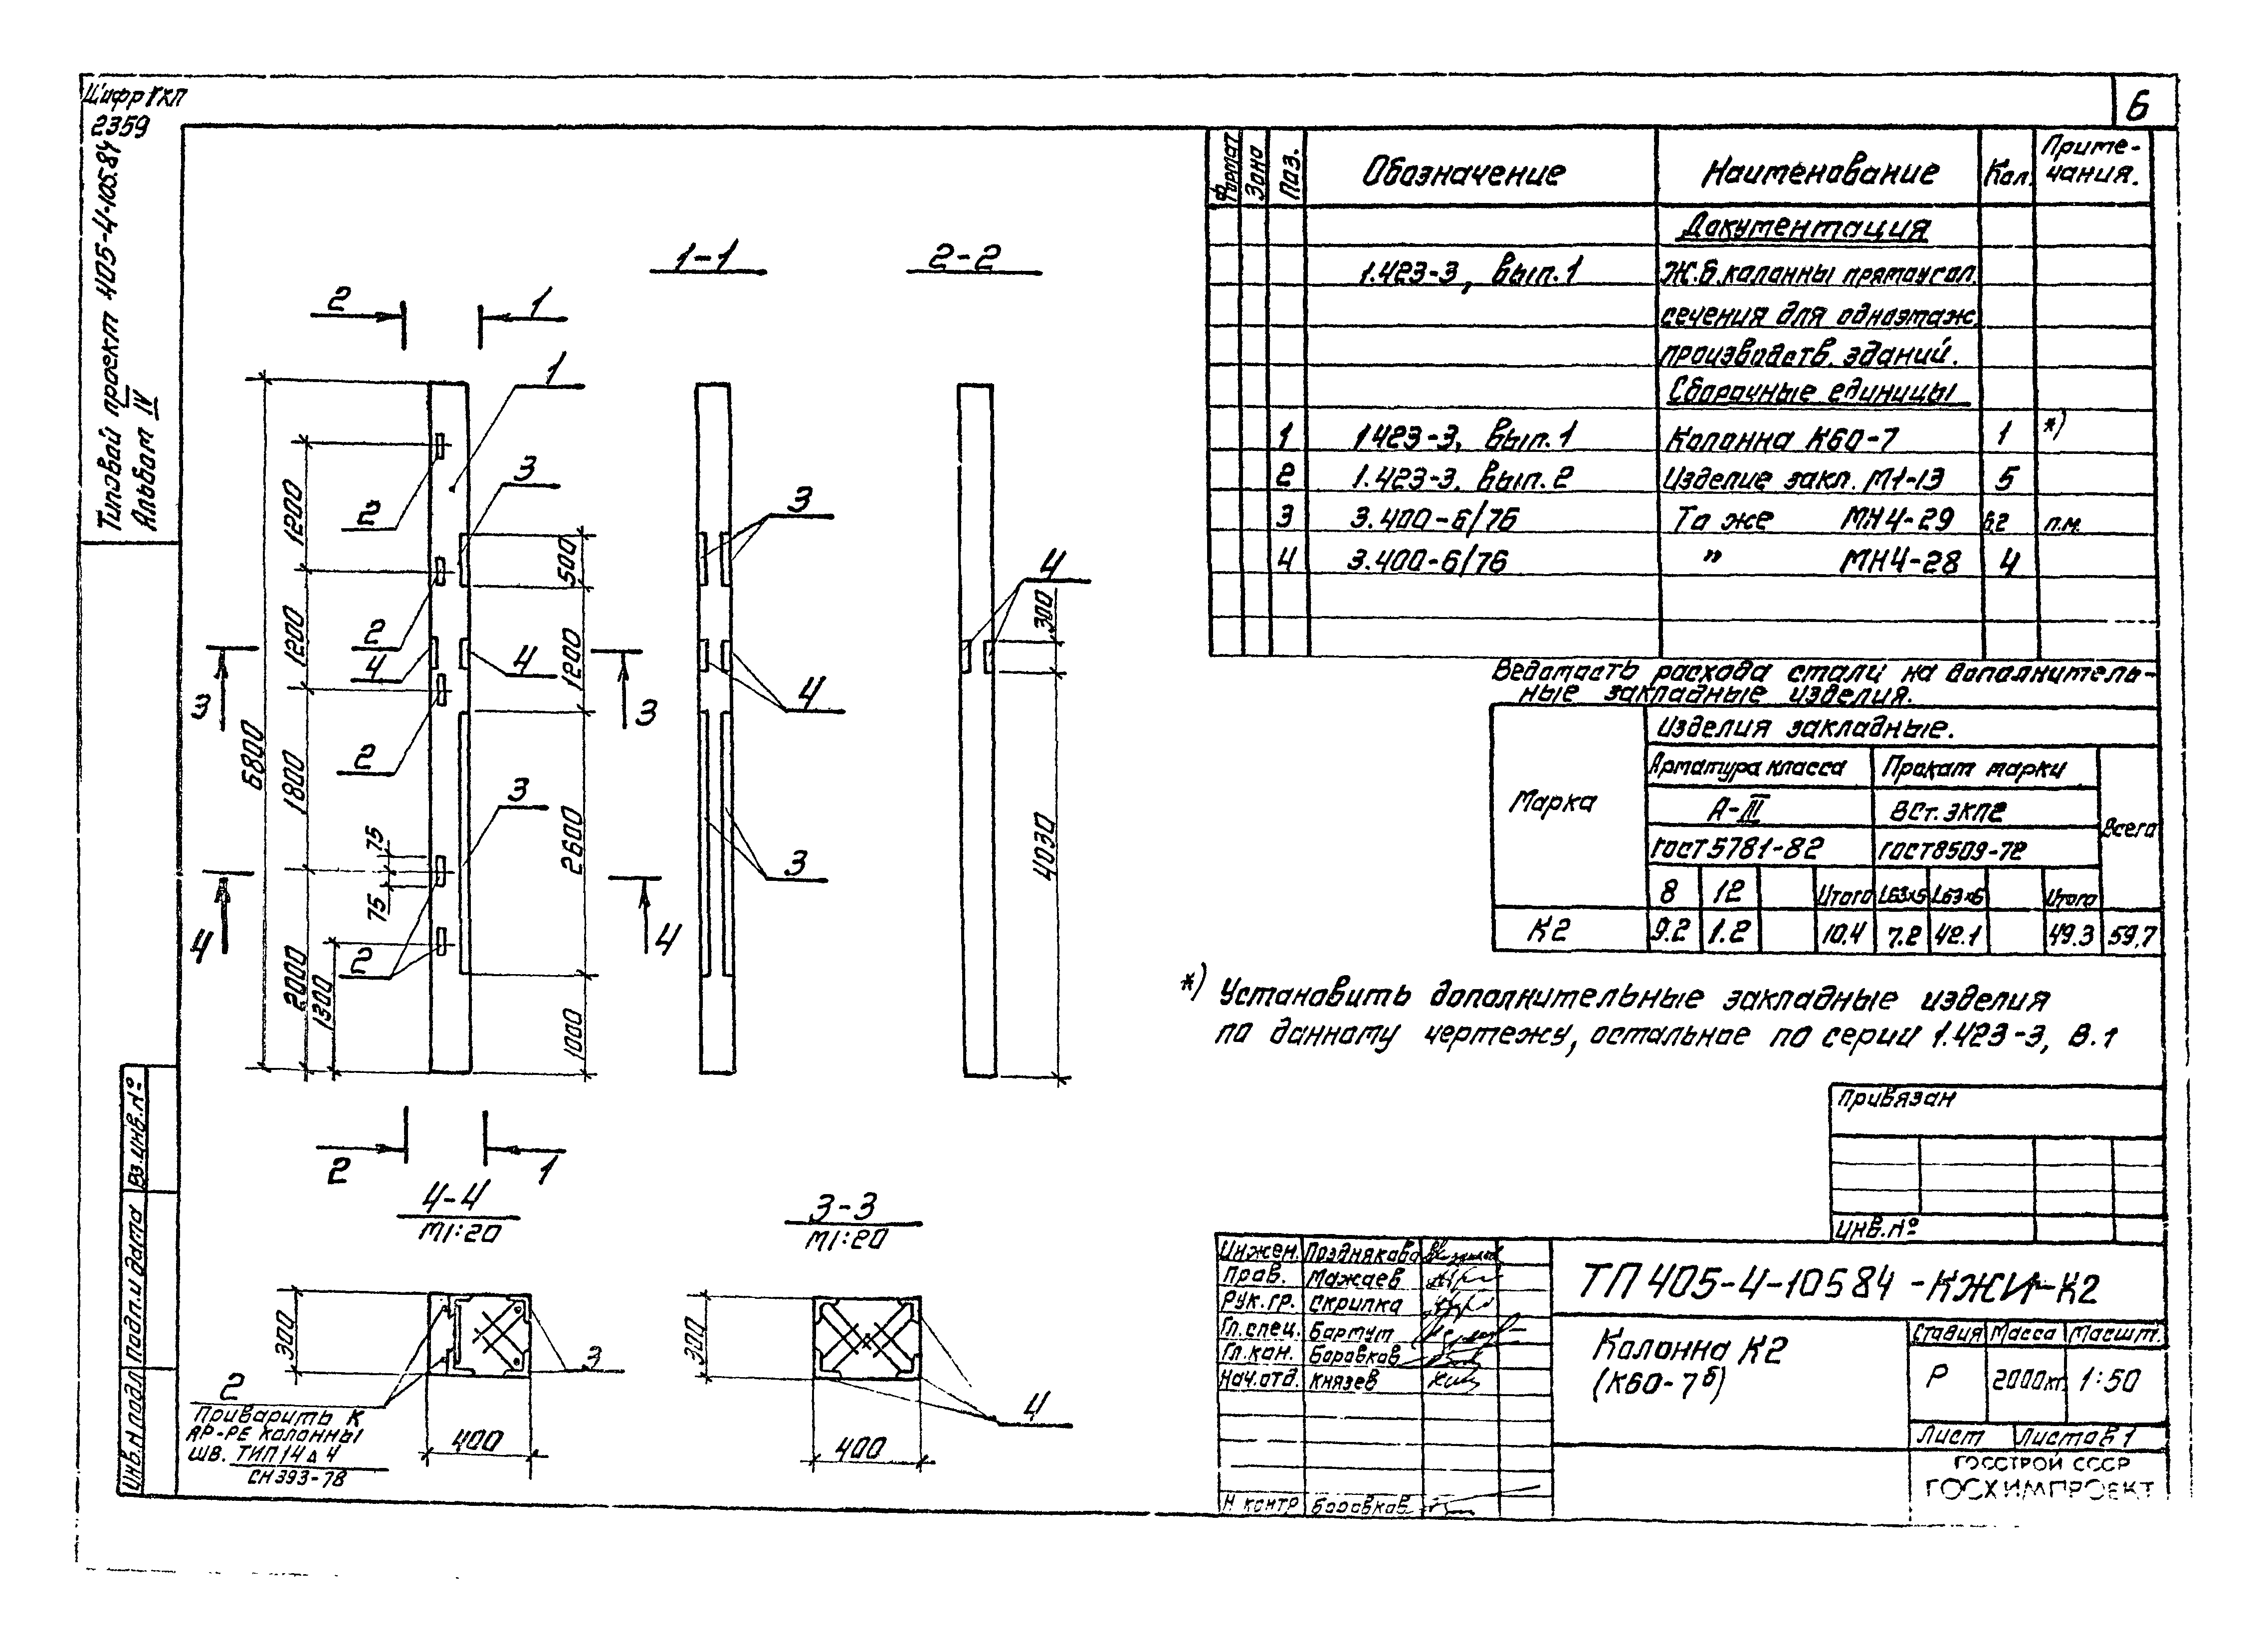 Шифр ГХП
2359
Типовой проект 405-4-105.84
Альбом IV
6
Формат Зона Поз. Обозначение Наименование Кол. Приме-
чания.
Документация
1.423-3, вып.1 Ж.б. колонны прямоугол.
сечения для одноэтаж.
производств. зданий.
Сборочные единицы
1 1423-3, вып.1 Колонна К60-7 1 *)
2 1.423-3. вып.2 Изделие закл. М1-13 5
3 3.400-6/76 То же МН4-29 6.2 п.м.
4 3.400-6/76 " МН4-28 4
Ведомость расхода стали на дополнитель-
ные закладные изделия.
Марка
Изделия закладные.
Арматура класса Прокат марки
А-III ВСт.3кп2 Всего
ГОСТ 5781-82 ГОСТ 8509-72
8 12 Итого L63×5 L63×6 Итого
К2 9.2 1.2 10.4 7.2 42.1 49.3 59,7
*) Установить дополнительные закладные изделия
по данному чертежу, остальное по серии 1.423-3, в.1
1-1
2-2
2 1
1
3
2
2
4
4
2
3
2
3 3
4 4
6800
1200
1200
1800
75
75
2000
1300
500
1200
2600
1000
2 1
3
4
3
4
300
4030
4-4
М1:20
300
400
3
2
Приварить к
ар-ре колонны
шв. тип 14 Δ 4
СН 393-78
3-3
М1:20
300
400
4
Привязан
Инв.№
Инжен. Позднякова
Пров. Мажаев
Рук.гр. Скрипка
Гл.спец. Бартут
Гл.кон. Боровков
Нач.отд. Князев
Н контр Боровков
ТП 405-4-10584 -КЖИ-К2
Колонна К2
(К60-7б)
Стадия Масса Масшт.
Р 2000кг. 1:50
Лист Листов 1
ГОССТРОЙ СССР
ГОСХИМПРОЕКТ
Инв.N подл Подп.и дата Вз.инв.№